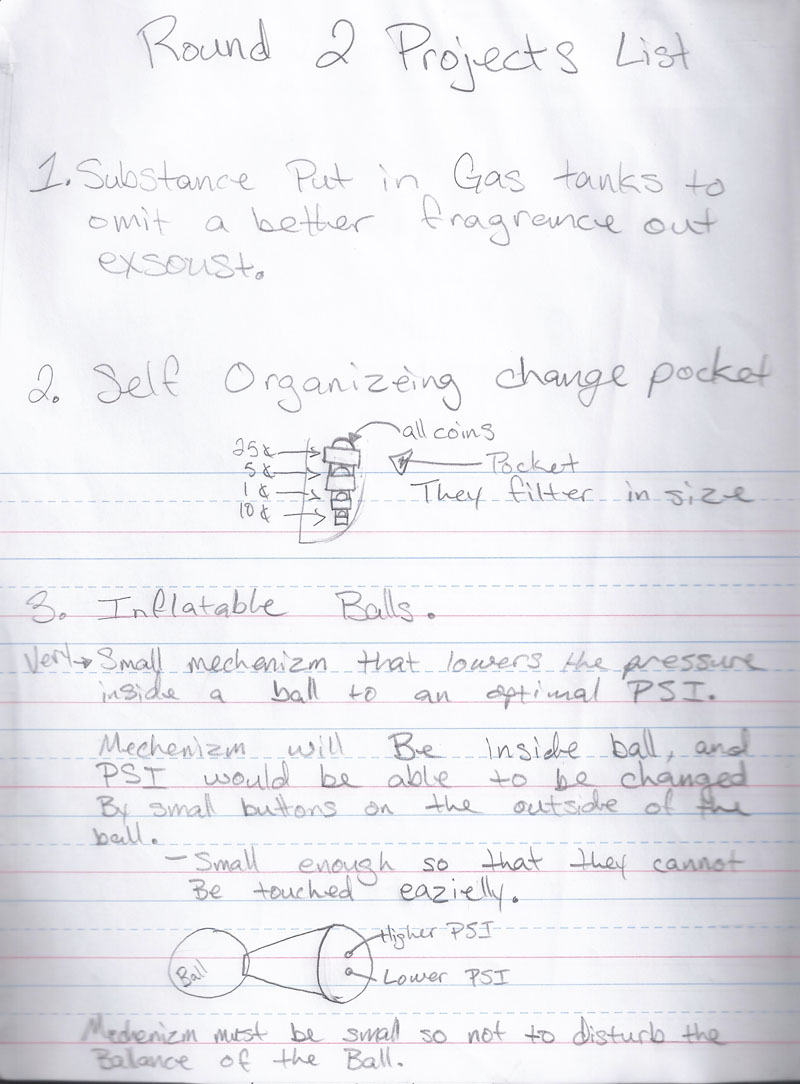 Round 2 Projects List
1. Substance Put in Gas tanks to
omit a bether fragreance out
exsoust.
2. Self Organizeing change pocket
all coins
25¢
5¢
Pocket
1¢
They filter in size
10¢
3. Inflatable Balls.
Vert Small mechenizm that lowers the pressure
inside a ball to an optimal PSI.
Mechenizm will Be inside ball, and
PSI would be able to be changed
By small buttons on the outside of the
ball.
- Small enough so that they cannot
Be touched eazielly.
Higher PSI
Ball
Lower PSI
Mechenizm must be small so not to disturb the
Balance of the Ball.